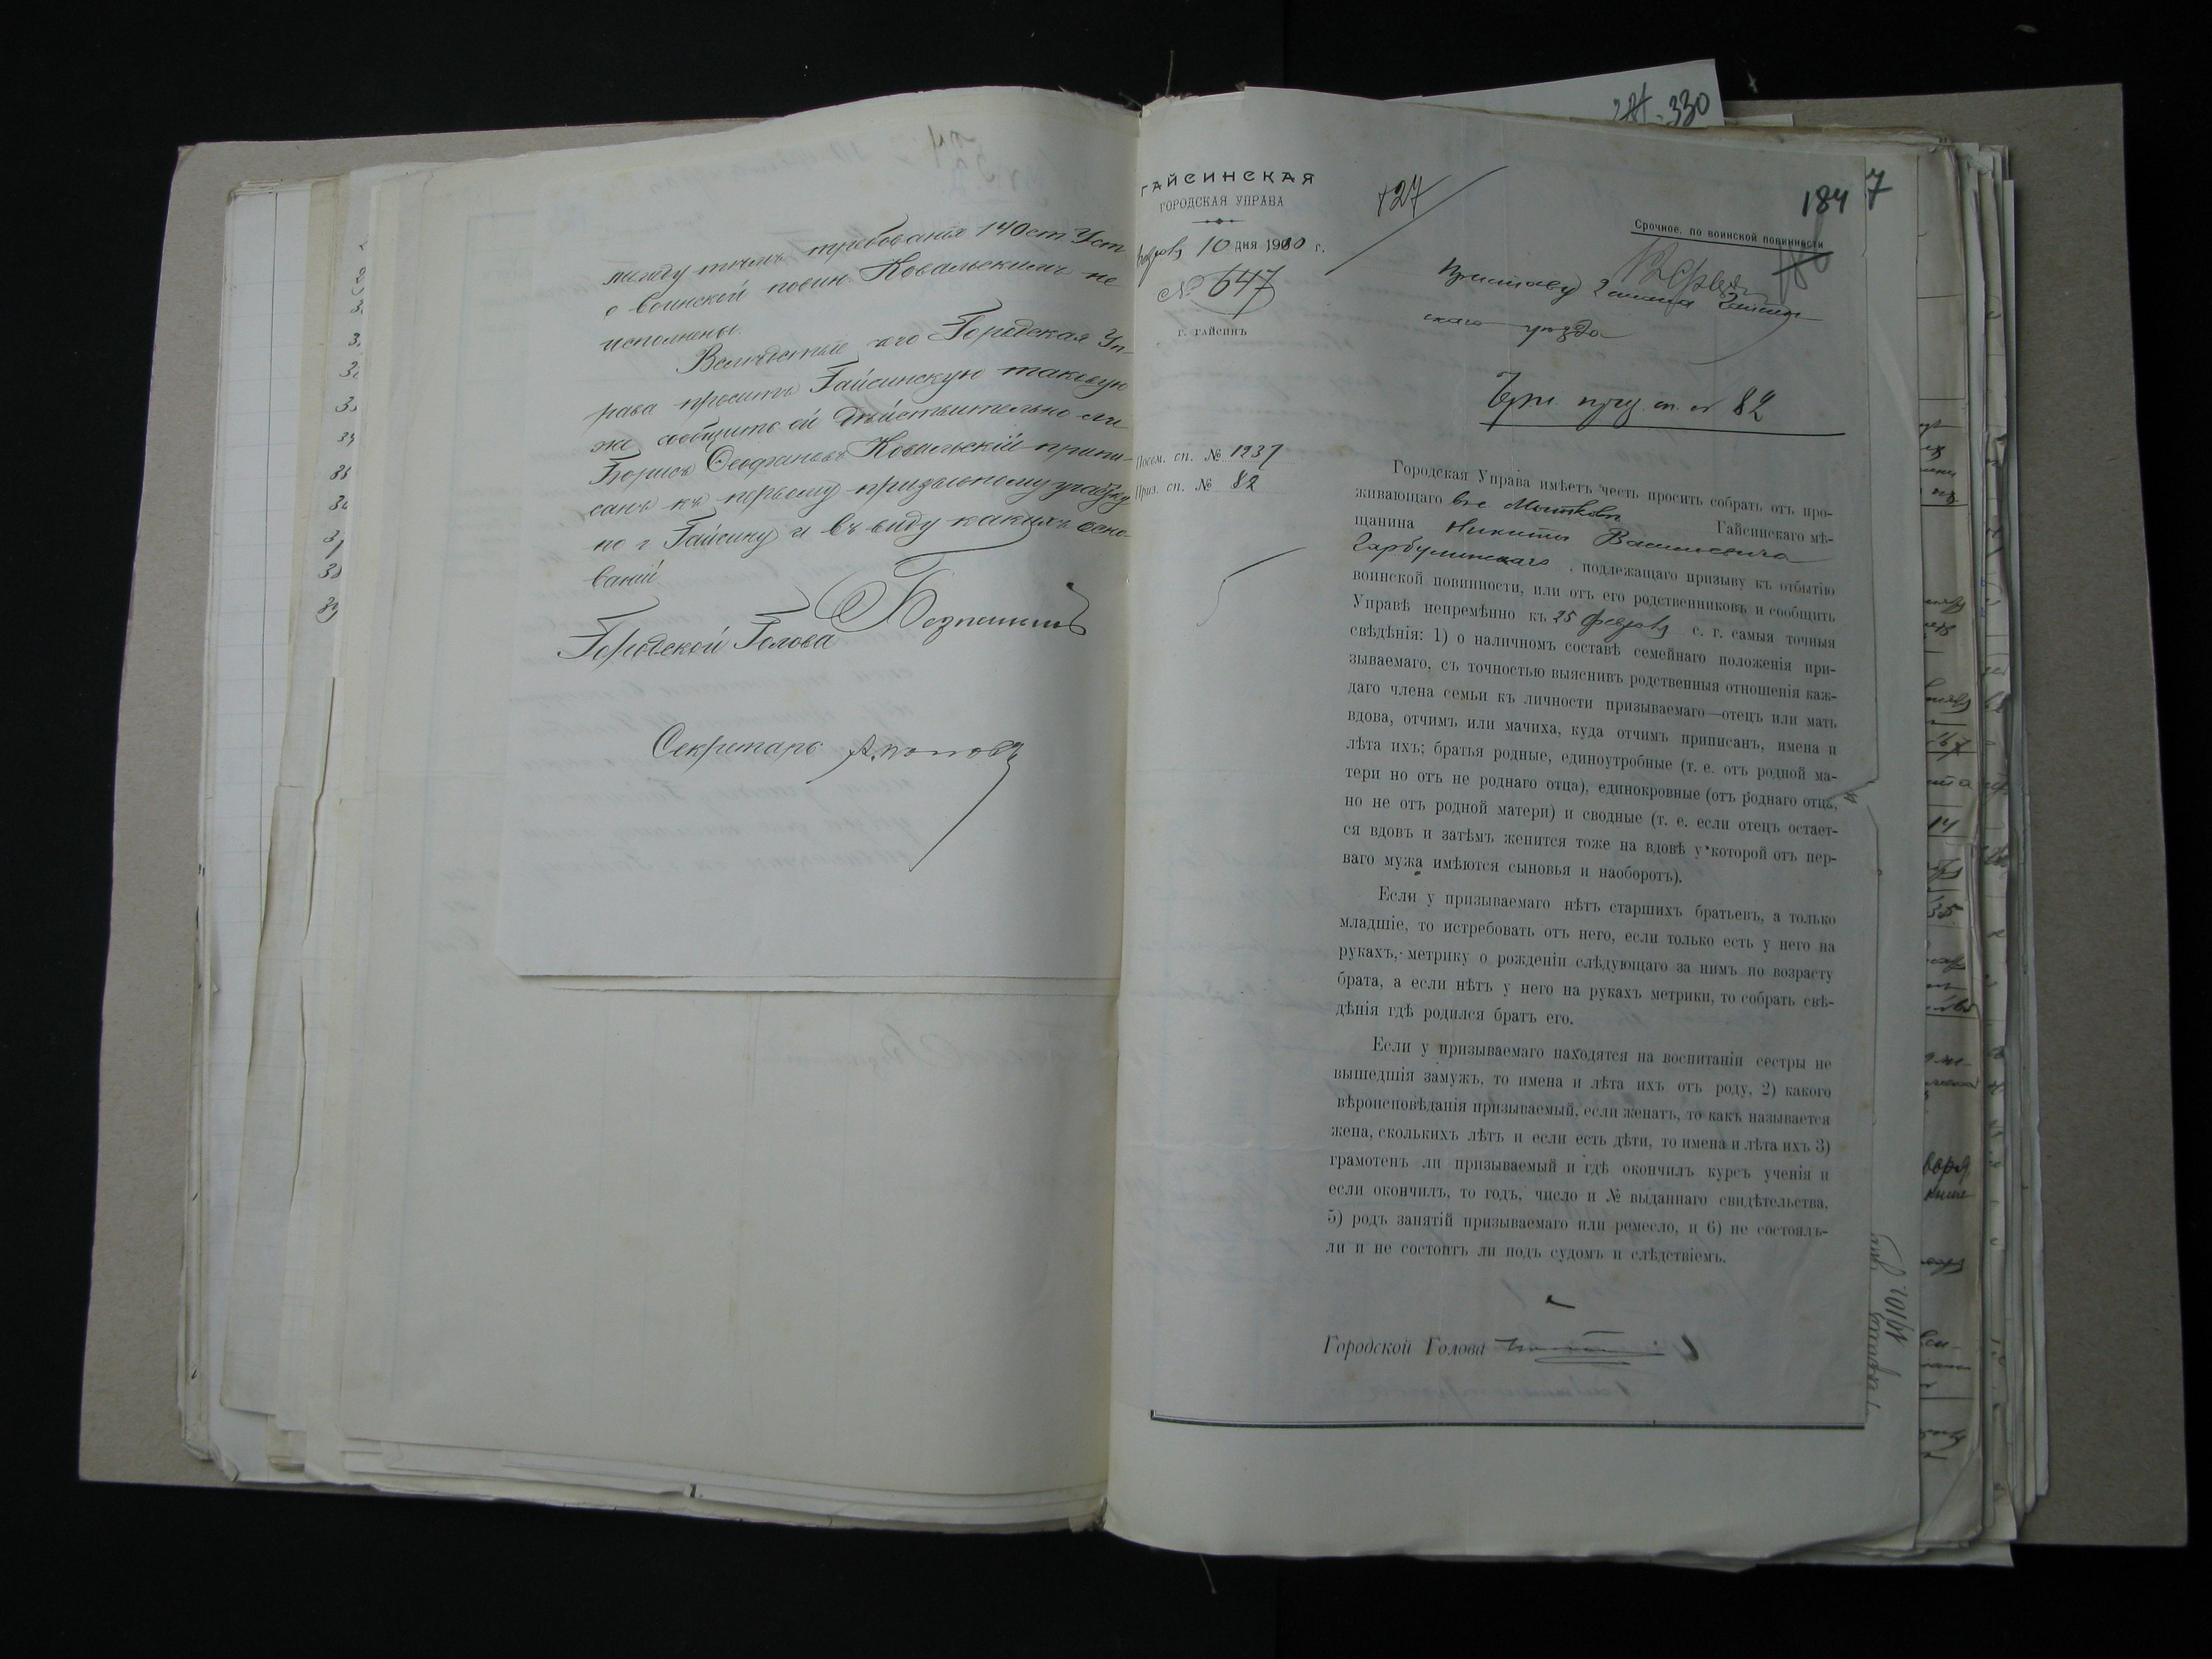 между тѣмъ требованія 140 ст Уст
о воинской повин. Ковальскимъ не
исполнены.
Вслѣдствіе чего Городская Уп-
рава проситъ Гайсинскую таковую
же сообщить ей дѣйствительно ли
Борисъ Ѳеофановъ Ковальскій припи-
санъ къ первому призывному участку
по г Гайсину и въ виду какихъ осно-
ваній.
Городской Голова
Секретарь А. Поповъ
281-330
ГАЙСИНСКАЯ
ГОРОДСКАЯ УПРАВА
10 дня 1910 г.
№ 647
г. ГАЙСИНЪ
127
184
7
Срочное, по воинской повинности
Приставу 2 стана Гайсин
скаго уѣзда
82
Посем. сп. № 1237
Приз. сп. № 82
Городская Управа имѣетъ честь просить собрать отъ про-
живающаго въ с. Мытковѣ Гайсинскаго мѣ-
щанина Никиты Васильевича
, подлежащаго призыву къ отбытію
воинской повинности, или отъ его родственниковъ и сообщить
Управѣ непремѣнно къ 25 февраля с. г. самыя точныя
свѣдѣнія: 1) о наличномъ составѣ семейнаго положенія при-
зываемаго, съ точностью выяснивъ родственныя отношенія каж-
даго члена семьи къ личности призываемаго—отецъ или мать
вдова, отчимъ или мачиха, куда отчимъ приписанъ, имена и
лѣта ихъ; братья родные, единоутробные (т. е. отъ родной ма-
тери но отъ не роднаго отца), единокровные (отъ роднаго отца,
но не отъ родной матери) и сводные (т. е. если отецъ остает-
ся вдовъ и затѣмъ женится тоже на вдовѣ у которой отъ пер-
ваго мужа имѣются сыновья и наоборотъ).
Если у призываемаго нѣтъ старшихъ братьевъ, а только
младшіе, то истребовать отъ него, если только есть у него на
рукахъ, метрику о рожденіи слѣдующаго за нимъ по возрасту
брата, а если нѣтъ у него на рукахъ метрики, то собрать свѣ-
дѣнія гдѣ родился братъ его.
Если у призываемаго находятся на воспитаніи сестры не
вышедшія замужъ, то имена и лѣта ихъ отъ роду, 2) какого
вѣроисповѣданія призываемый, если женатъ, то какъ называется
жена, сколькихъ лѣтъ и если есть дѣти, то имена и лѣта ихъ 3)
грамотенъ ли призываемый и гдѣ окончилъ курсъ ученія и
если окончилъ, то годъ, число и № выданнаго свидѣтельства,
5) родъ занятій призываемаго или ремесло, и 6) не состоялъ-
ли и не состоитъ ли подъ судомъ и слѣдствіемъ.
Городской Голова